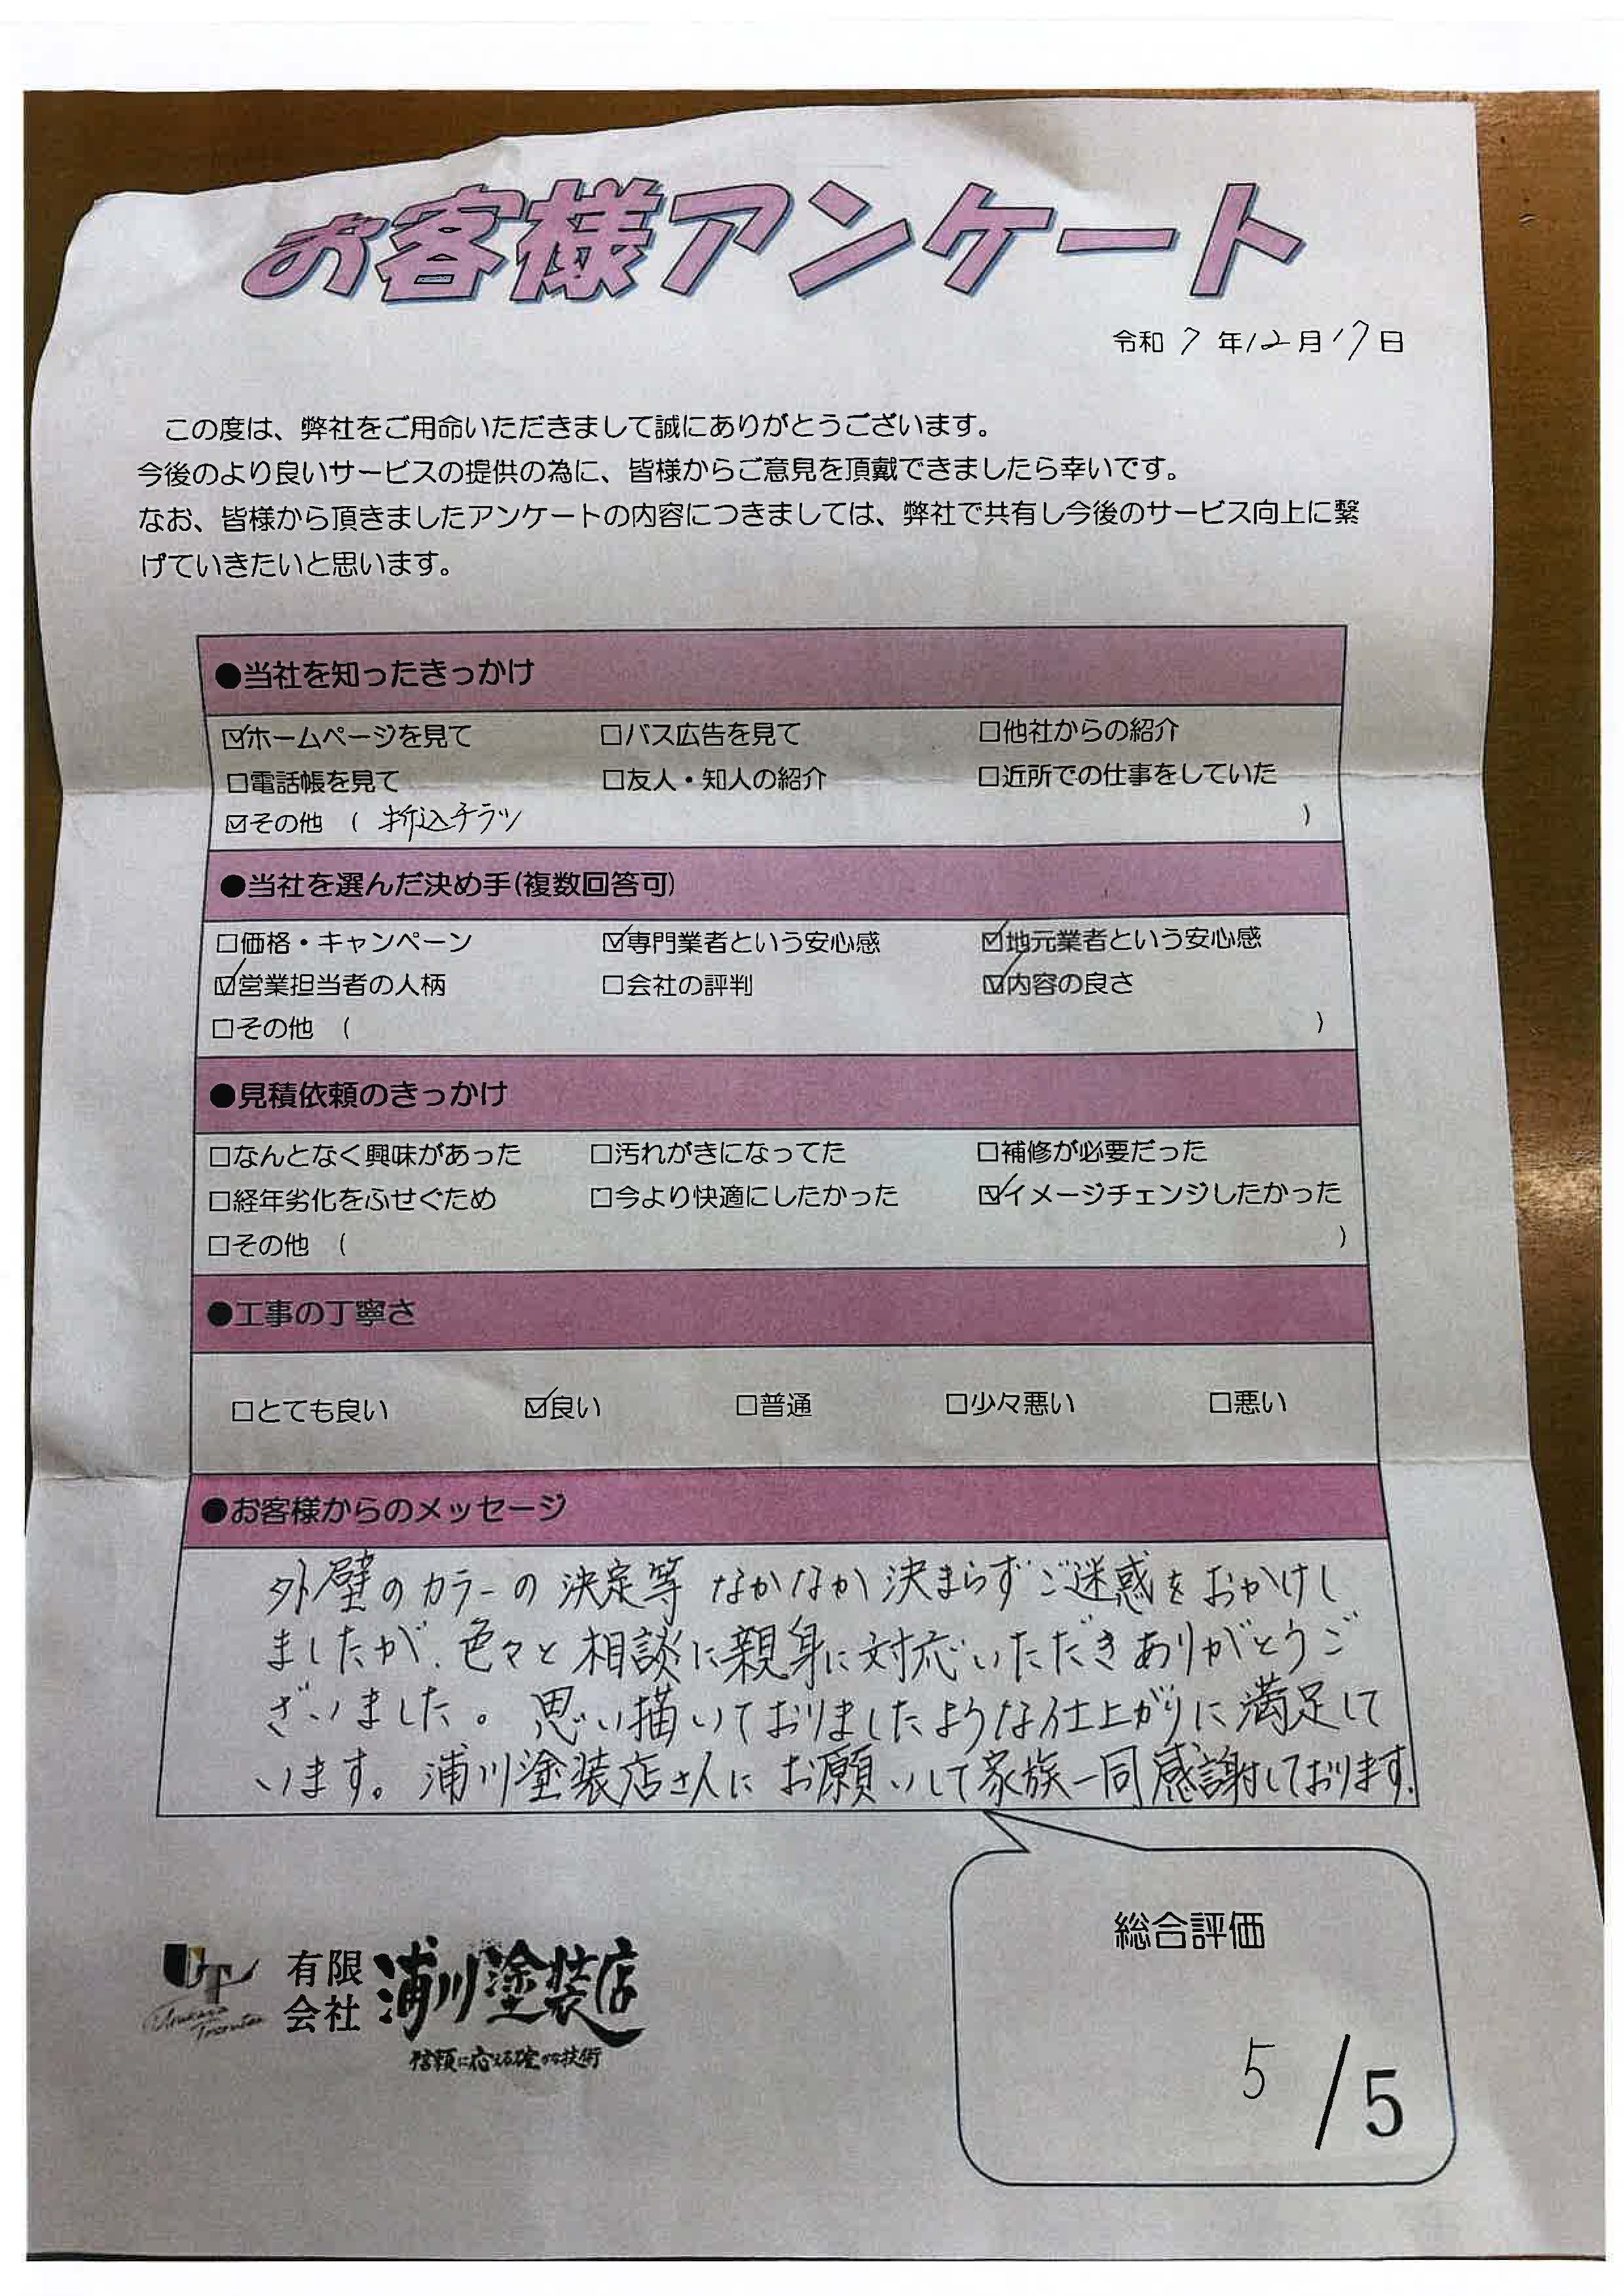 お客様アンケート
令和 7 年 12 月 17 日
この度は、弊社をご用命いただきまして誠にありがとうございます。
今後のより良いサービスの提供の為に、皆様からご意見を頂戴できましたら幸いです。
なお、皆様から頂きましたアンケートの内容につきましては、弊社で共有し今後のサービス向上に繋
げていきたいと思います。
●当社を知ったきっかけ
☑ホームページを見て □バス広告を見て □他社からの紹介
□電話帳を見て □友人・知人の紹介 □近所での仕事をしていた
☑その他 ( 折込チラシ )
●当社を選んだ決め手(複数回答可)
□価格・キャンペーン ☑専門業者という安心感 ☑地元業者という安心感
☑営業担当者の人柄 □会社の評判 ☑内容の良さ
□その他 ( )
●見積依頼のきっかけ
□なんとなく興味があった □汚れがきになってた □補修が必要だった
□経年劣化をふせぐため □今より快適にしたかった ☑イメージチェンジしたかった
□その他 ( )
●工事の丁寧さ
□とても良い ☑良い □普通 □少々悪い □悪い
●お客様からのメッセージ
外壁のカラーの決定等 なかなか決まらずご迷惑をおかけし
ましたが、色々と相談に親身に対応いただきありがとうご
ざいました。思い描いておりましたような仕上がりに満足して
います。浦川塗装店さんにお願いして家族一同感謝しております。
総合評価
5 / 5
UT
有限会社 浦川塗装店
信頼に応える確かな技術